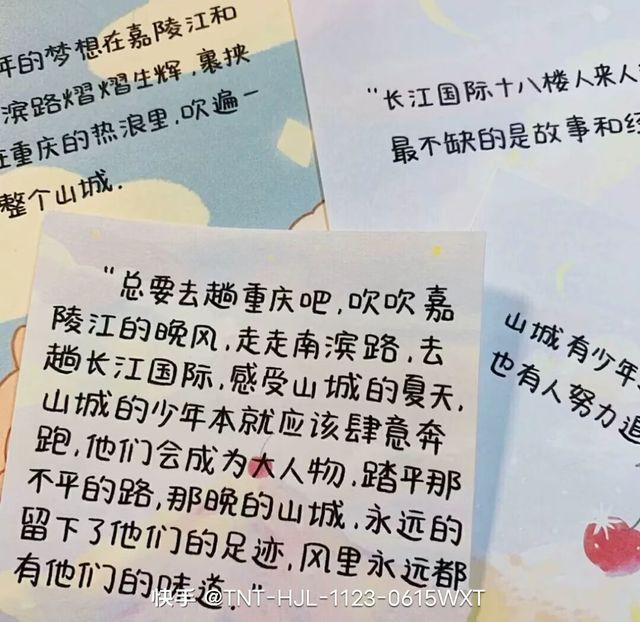 年的梦想在嘉陵江和
滨路熠熠生辉，裹挟
在重庆的热浪里，吹遍一
整个山城.
"长江国际十八楼人来人
最不缺的是故事和经
"总要去趟重庆吧，吹吹嘉
陵江的晚风，走走南滨路，去
趟长江国际，感受山城的夏天，
山城的少年本就应该肆意奔
跑，他们会成为大人物，踏平那
不平的路，那晚的山城，永远的
留下了他们的足迹，风里永远都
有他们的味道."
山城有少年
也有人努力追
快手 @TNT-HJL-1123-0615WXT